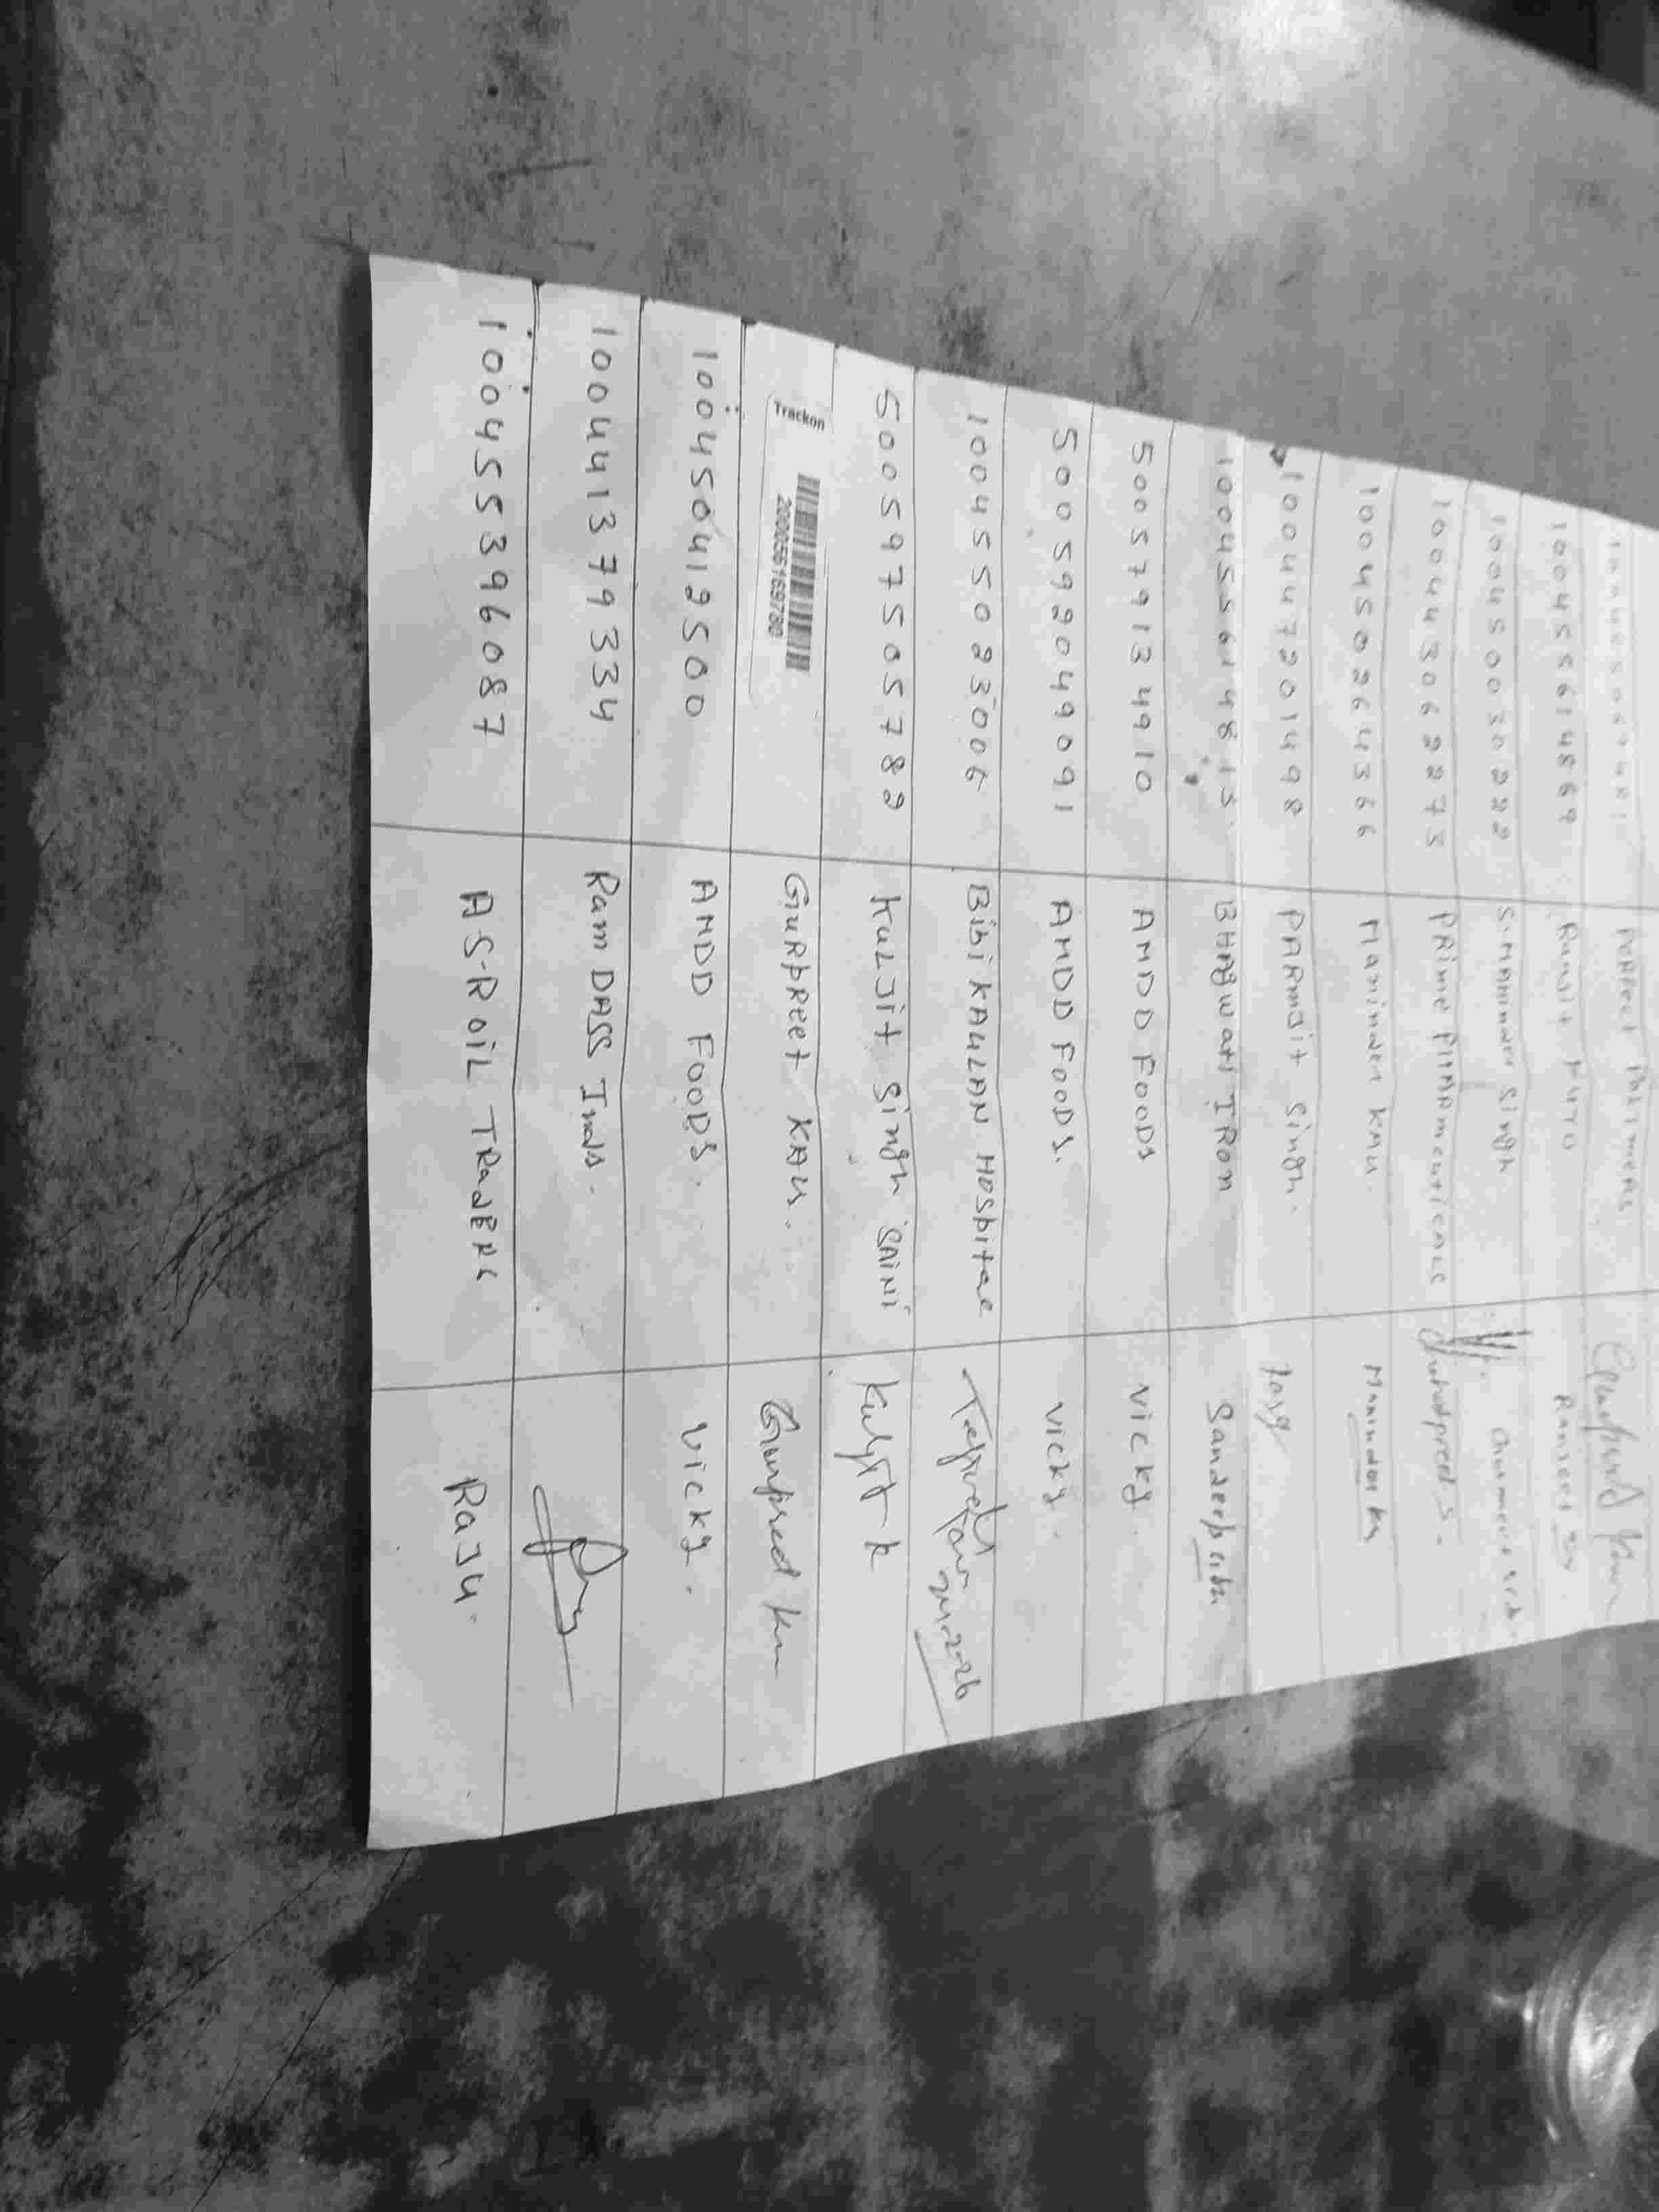 Perfect Polymers
100455614869 Ranjit Auto
100450030222 S. Maninder Singh
100443062275 PRime PHARmeuticals
100450264366 Maninder KAU.
100447201498 PARmJit Singh.
100455614815 BHAgwati IRon Sandeep
500579134910 AMDD FOODS Vicky
500592049091 AMDD FOODS. Vicky.
100455023006 Bibi KAULAN HOSpital
500597505782 KULJit Singh SAINI Kuljit k
Trackon GuRpReet KAU. Gurpreet
100450412500 AMDD FOODS. Vicky.
100441379334 Ram DASS Inds.
100455396087 A-S-R OIL TRADERS RaJu.